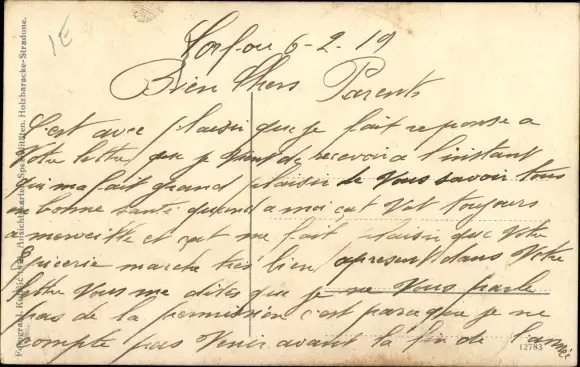 1E
Corfou 6-2.19
Bien Chers Parents
C'est avec plaisir que je fait reponse a
Votre lettre que je vient de recevoir a l'instant
qui ma fait grand plaisir de Vous savoir tous
en bonne santé quand a moi cat Vat toujours
a merveille et cat me fait plaisir que Votre
épicerie marche tres bien apresent dans Votre
lettre Vous me dites que je ne Vous parle
pas de la permission c'est parce que je ne
compte pas Venir avant la fin de l'année
12783
Ansichtskarten-Spezialitäten, Holzbaracke-Stradone.